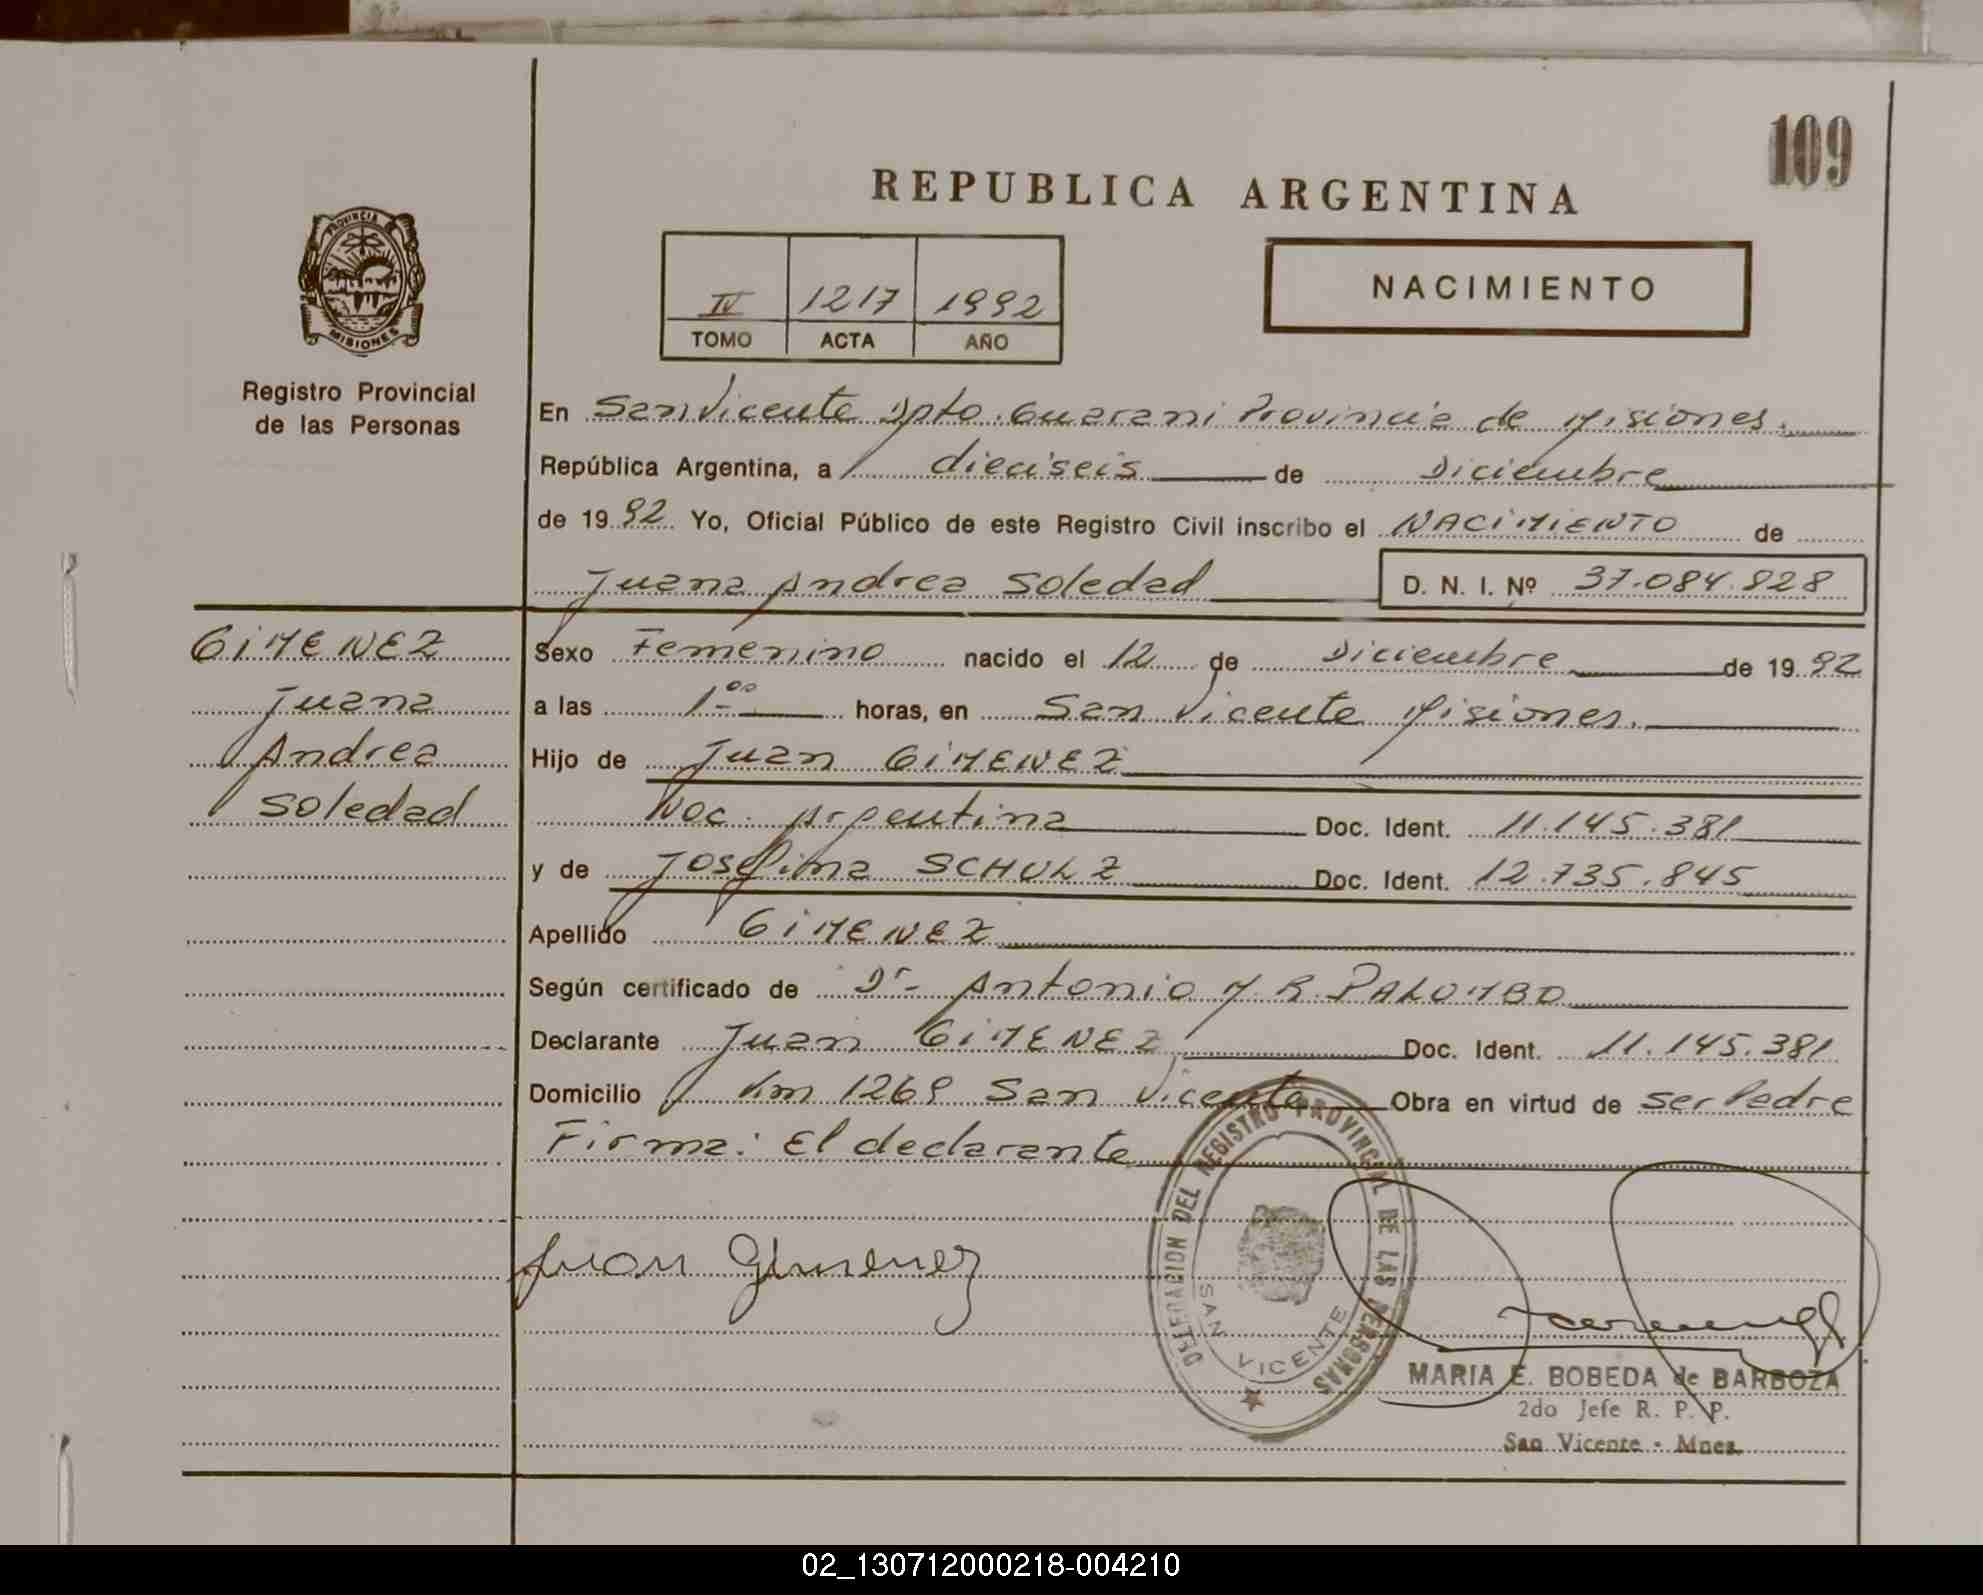 109
REPUBLICA ARGENTINA
PROVINCIA
MISIONES
Registro Provincial
de las Personas
IV 1217 1992
TOMO ACTA AÑO
NACIMIENTO
En San Vicente Dpto. Guarani Provincia de Misiones.
República Argentina, a dieciseis de Diciembre
de 1992 Yo, Oficial Público de este Registro Civil inscribo el NACIMIENTO de
Juana Andrea Soledad D. N. I. Nº 37.084.928
GIMENEZ
Juana
Andrea
Soledad
Sexo Femenino nacido el 12 de Diciembre de 1992
a las 1oo horas, en San Vicente Misiones.
Hijo de Juan GIMENEZ
Nac. Argentina Doc. Ident. 11.145.381
y de Josefina SCHULZ Doc. Ident. 12.735.845
Apellido GIMENEZ
Según certificado de Dr- Antonio M. R. PALOMBO
Declarante Juan GIMENEZ Doc. Ident. 11.145.381
Domicilio Km 1269 San Vicente Obra en virtud de ser Padre
Firma: El declarante
Juan Gimenez
DELEGACION DEL REGISTRO PROVINCIAL DE LAS PERSONAS
SAN VICENTE
MARIA E. BOBEDA de BARBOZA
2do Jefe R. P. P.
San Vicente - Mnes.
02_130712000218-004210